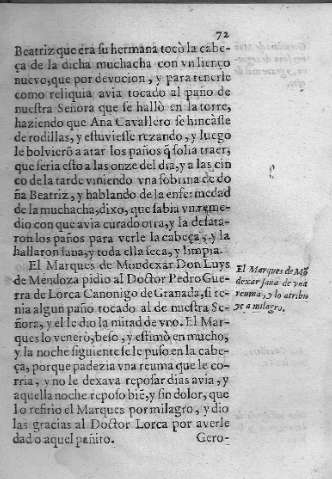 72
Beatriz que era su hermana tocò la cabe-
ça de la dicha muchacha con vn lienço
nueuo, que por deuocion, y para tenerle
como reliquia auia tocado al paño de
nuestra Señora que se hallò en la torre,
haziendo que Ana Cauallero se hincasse
de rodillas, y estuuiesse rezando, y luego
le boluierõ a atar los paños q̃ solia traer,
que seria esto a las onze del dia, y a las cin
co de la tarde viniendo vna sobrina de do
ña Beatriz, y hablando de la enfermedad
de la muchacha, dixo, que sabia vn reme-
dio con que auia curado otra, y la desata-
ron los paños para verle la cabeça, y la
hallaron sana, y toda ella seca, y limpia.
El Marques de Mondexar Don Luys
de Mendoza pidio al Doctor Pedro Gue-
rra de Lorca Canonigo de Granada, si te-
nia algun paño tocado al de nuestra Se-
ñora, y el le dio la mitad de vno. El Mar-
ques lo venerò, besò, y estimò en mucho,
y la noche siguiente se le puso en la cabe-
ça, porque padezia vna reuma que le co-
rria, y no le dexaua reposar dias auia, y
aquella noche reposo biẽ, y sin dolor, que
lo refirio el Marques por milagro, y dio
las gracias al Doctor Lorca por auerle
dado aquel pañito.
Gero-
El Marques de Mõ
dexar sana de vna
reuma, y lo atribu
ye a milagro,